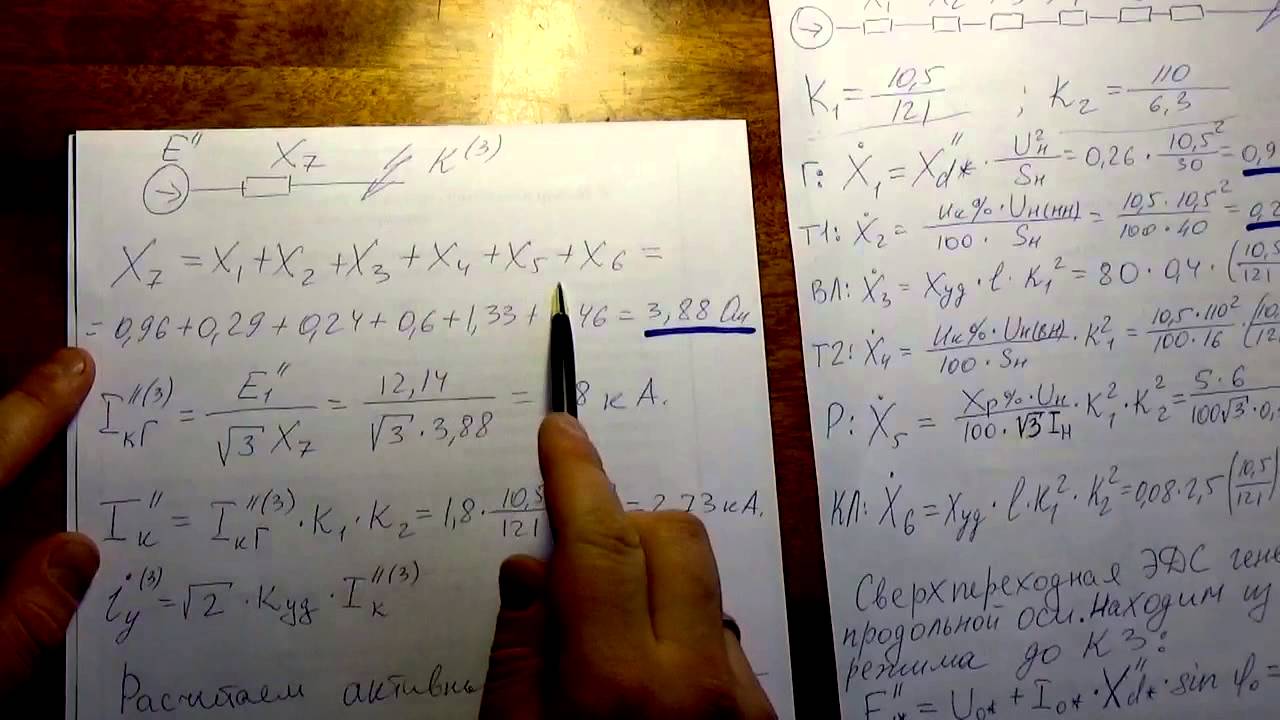 E'' X₇ K⁽³⁾
X₇ = X₁ + X₂ + X₃ + X₄ + X₅ + X₆ =
= 0,96 + 0,29 + 0,24 + 0,6 + 1,33 + 46 = 3,88 Ом
I''⁽³⁾кГ = E₁'' / √3 X₇ = 12,14 / √3 · 3,88 = 8 кА.
I''к = I''⁽³⁾кГ · K₁ · K₂ = 1,8 · 10,5 / 121 = 2,73 кА.
i⁽³⁾у = √2 · Kуд · I''⁽³⁾к
Расчитаем активн
K₁ = 10,5 / 121 ; K₂ = 110 / 6,3
Г: Ẋ₁ = X''d* · U²н / Sн = 0,26 · 10,5² / 30 = 0,9
Т1: Ẋ₂ = Uк% · Uн(нн) / 100 · Sн = 10,5 · 10,5² / 100 · 40 = 0,2
ВЛ: Ẋ₃ = Xуд · l · K₁² = 80 · 0,4 · (10,5 / 121
Т2: Ẋ₄ = Uк% · Uн(вн) / 100 · Sн · K₁² = 10,5 · 110² / 100 · 16 · (10, / 12
Р: Ẋ₅ = Xр% · Uн / 100 · √3 Iн · K₁² · K₂² = 5 · 6 / 100√3 · 0,
КЛ: Ẋ₆ = Xуд · l · K₁² · K₂² = 0,08 · 2,5 (10,5 / 121)
Сверхпереходная ЭДС ген
продольной оси. Находим из
режима до КЗ:
E''* = U₀* + I₀* · X''d* · sin φ₀ =